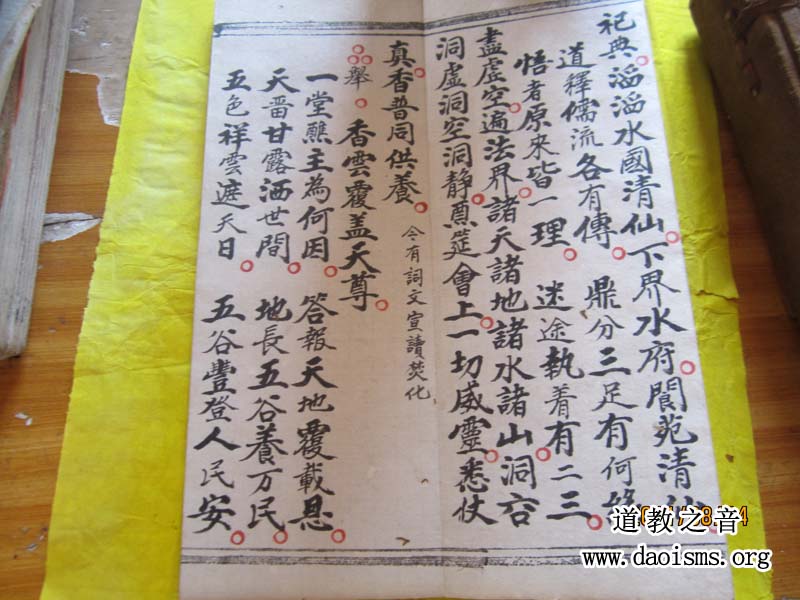 祀典滔滔水國清仙下界水府閬苑清
道釋儒流各有傳 鼎分三足有何
悟者原來皆一理 迷途執着有二三
盡虛空遍法界諸天諸地諸水諸山洞
洞虛洞空洞靜奠筵會上一切威靈悉仗
真香普同供養 今有詞文宣讀焚化
舉 香雲覆盖天尊
一堂醮主為何因 答報天地覆載恩
天畨甘露洒世間 地長五谷養万民
五色祥雲遮天日 五谷豐登人民安
道教之音
www.daoisms.org